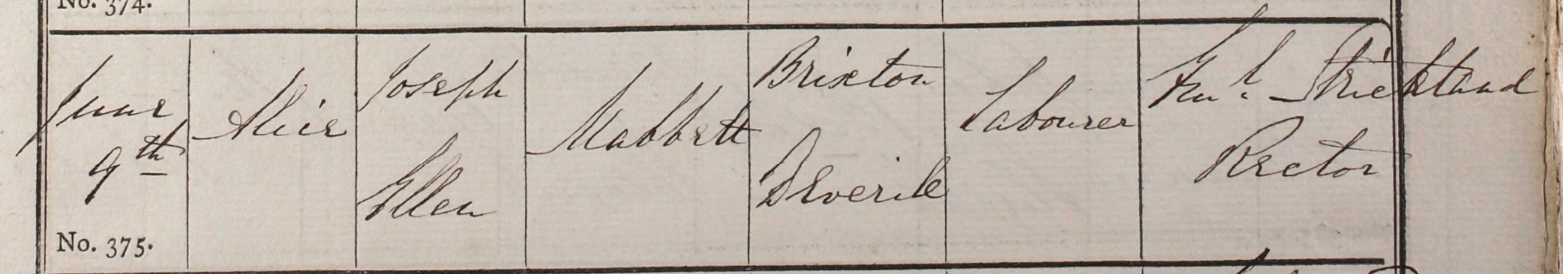 No. 374.
June
9th
Alice
Joseph
Ellen
Mabbett
Brixton
Deverile
Labourer
Strickland
Rector
No. 375.